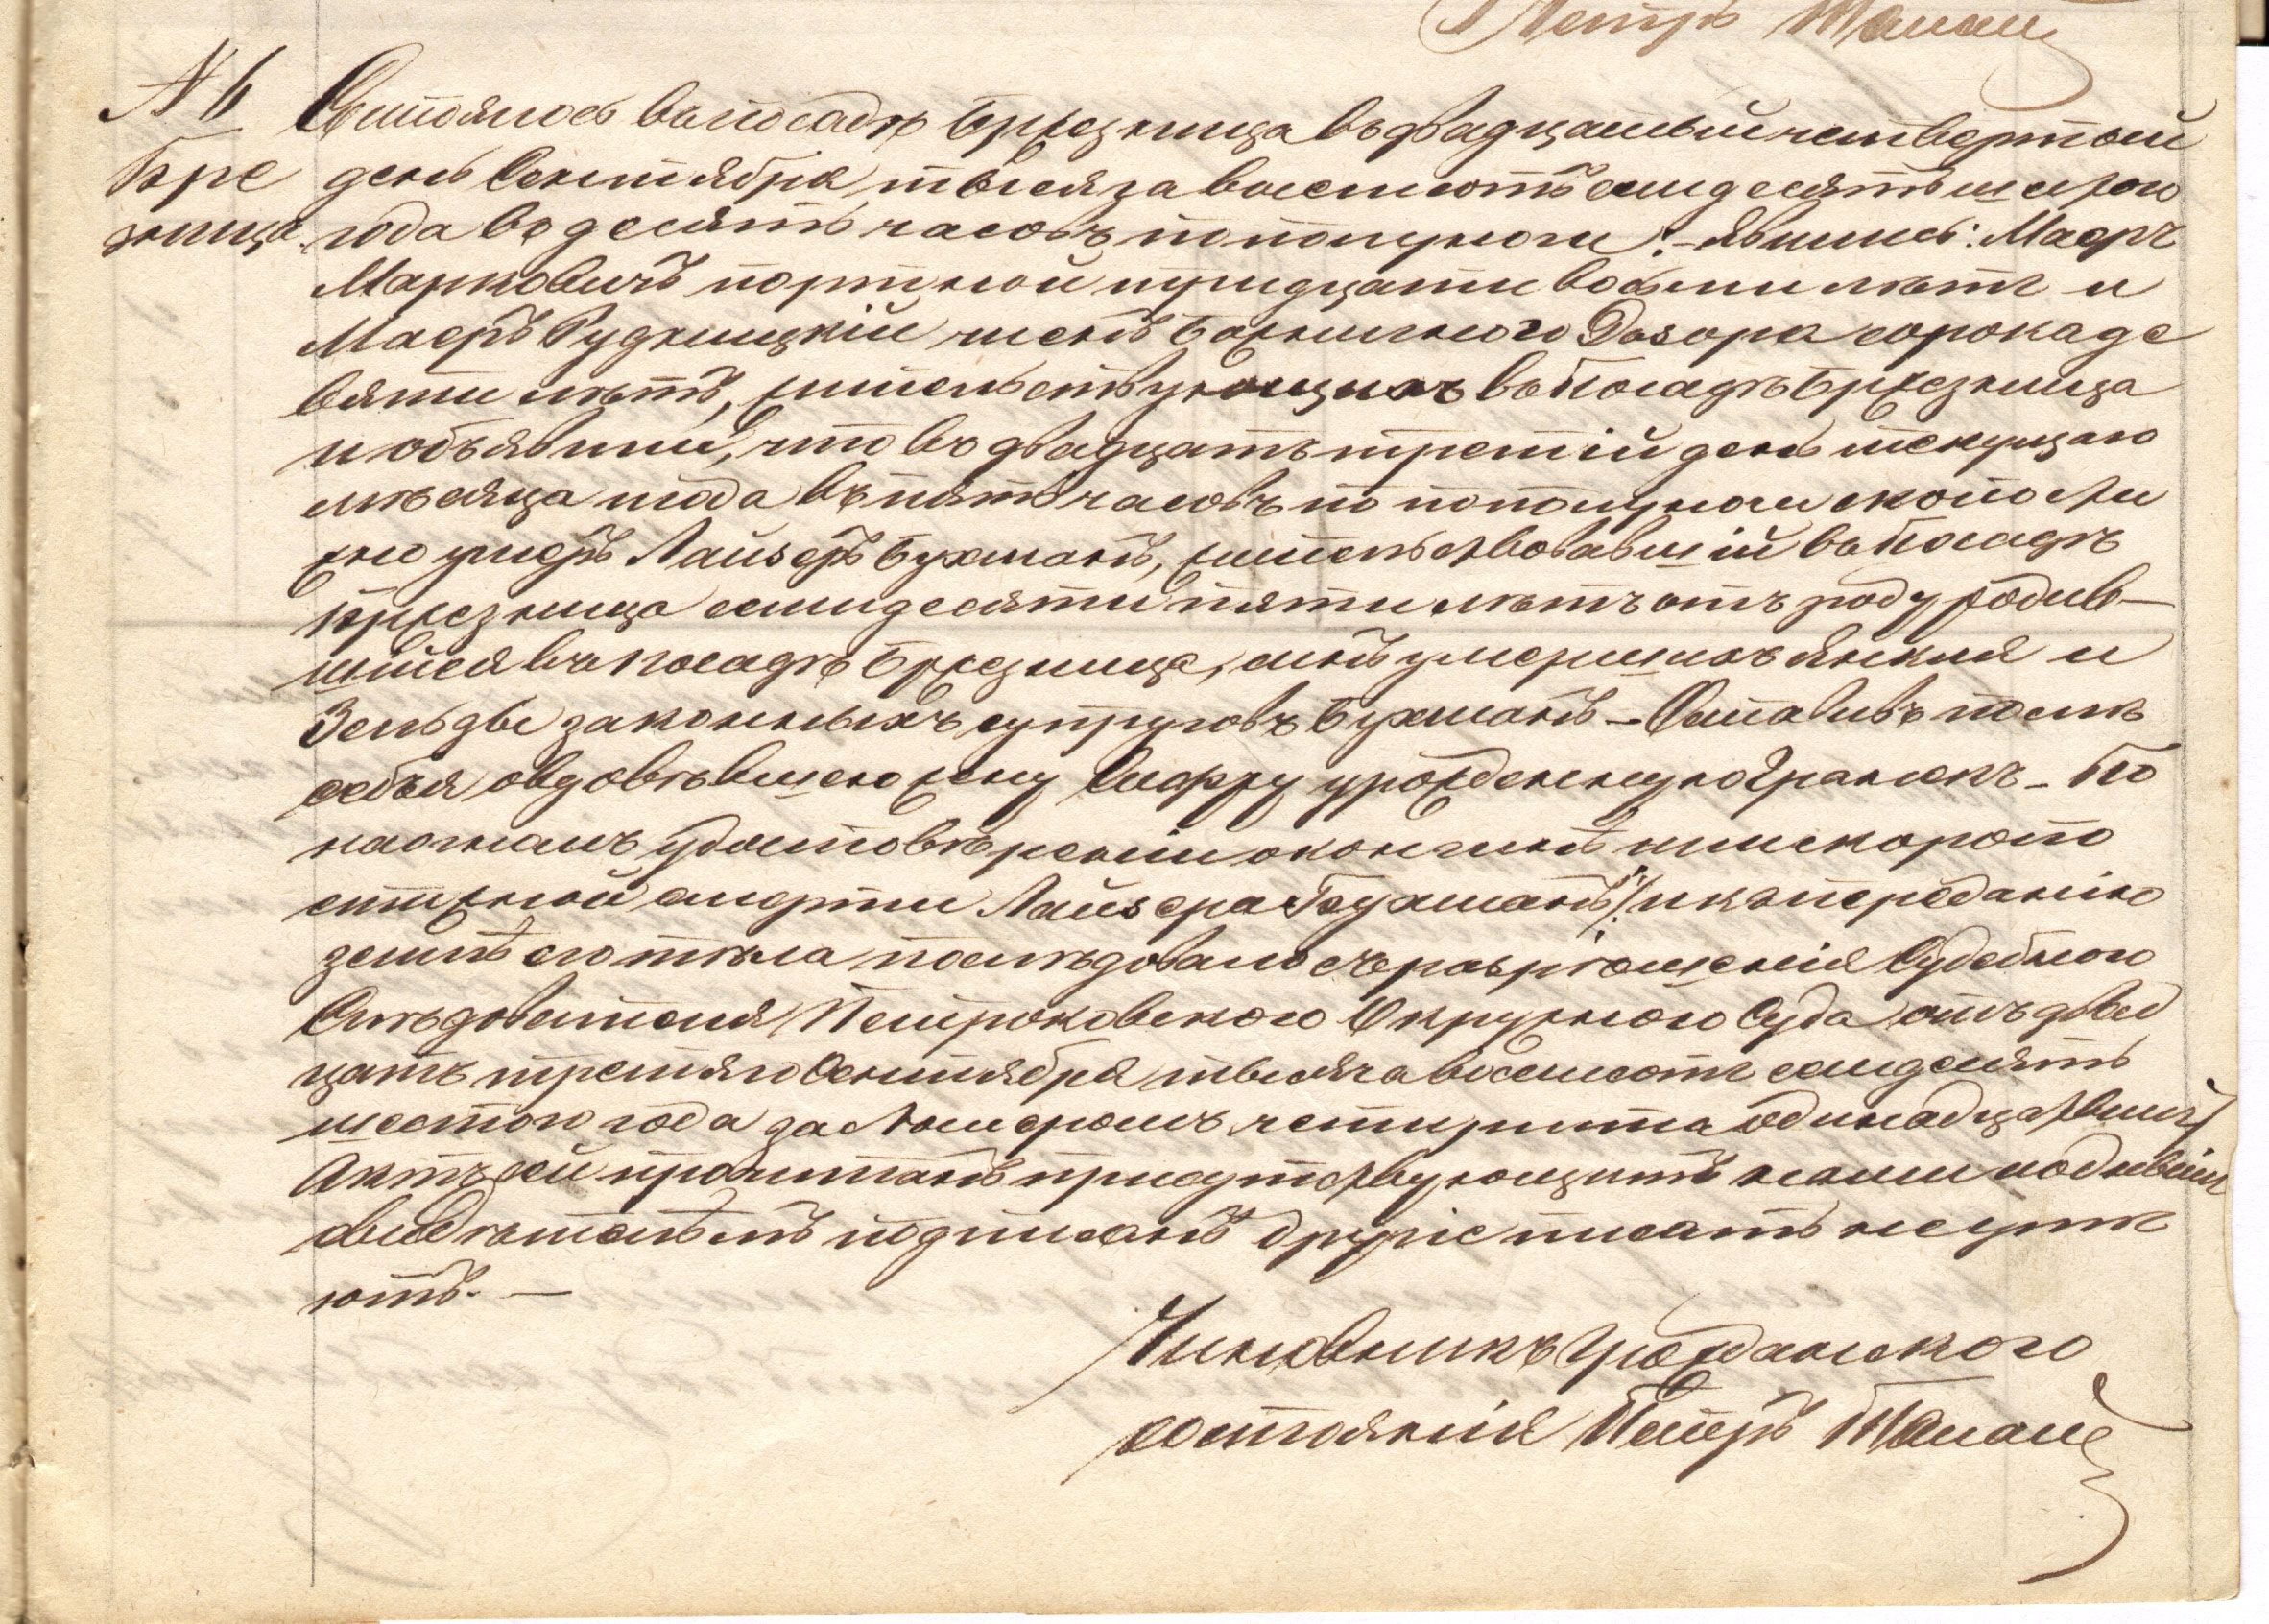 Петръ
№ 6
Бре
зница
Состоялось въ посадѣ Бржезница въ двадцатый четвертый
день Сентября, тысяза восемьсотъ семдесятъ шестого
года въ десять часовъ по полуночи. – явились: Маеръ
Марковичъ портной тридцати восьми лѣтъ и
Маеръ Рудницкій членъ Божничного Дозора сорока де
вяти лѣтъ, жительствующихъ въ Посадѣ Бржезница
и объявили, что въ двадцать третій день текущаго
мѣсяца года въ пять часовъ по пополуночи скопости
жно умеръ Лайзеръ Бухманъ, жительствовавшій въ Посадѣ
Бржезница семидесяти пяти лѣтъ отъ роду родив–
шійся въ посадѣ Бржезница, сынъ умершихъ Янкля и
Зельды законныхъ супруговъ Бухманъ – Оставивъ послѣ
себѣя овдовѣвшею жену Шифру урожденную – По
настоянъ удостовѣреніи о кончинѣ скоропо
стижной смерти Лайзера Бухманъ /: и къ преданію
землѣ его тѣла послѣдовало съ разрѣшенія Судебного
Слѣдователя Петроковского Окружного Суда отъ двад
цать третяго Сентября тысяча восемьсотъ семдесятъ
шестого года за Номеромъ четириста одинадцать
Актъ сей прочитанъ присутствующимъ нами
свидѣтелемъ подписанъ другіе писать не умѣ
ютъ. –
Чиновникъ Гражданского
состоянія Петеръ